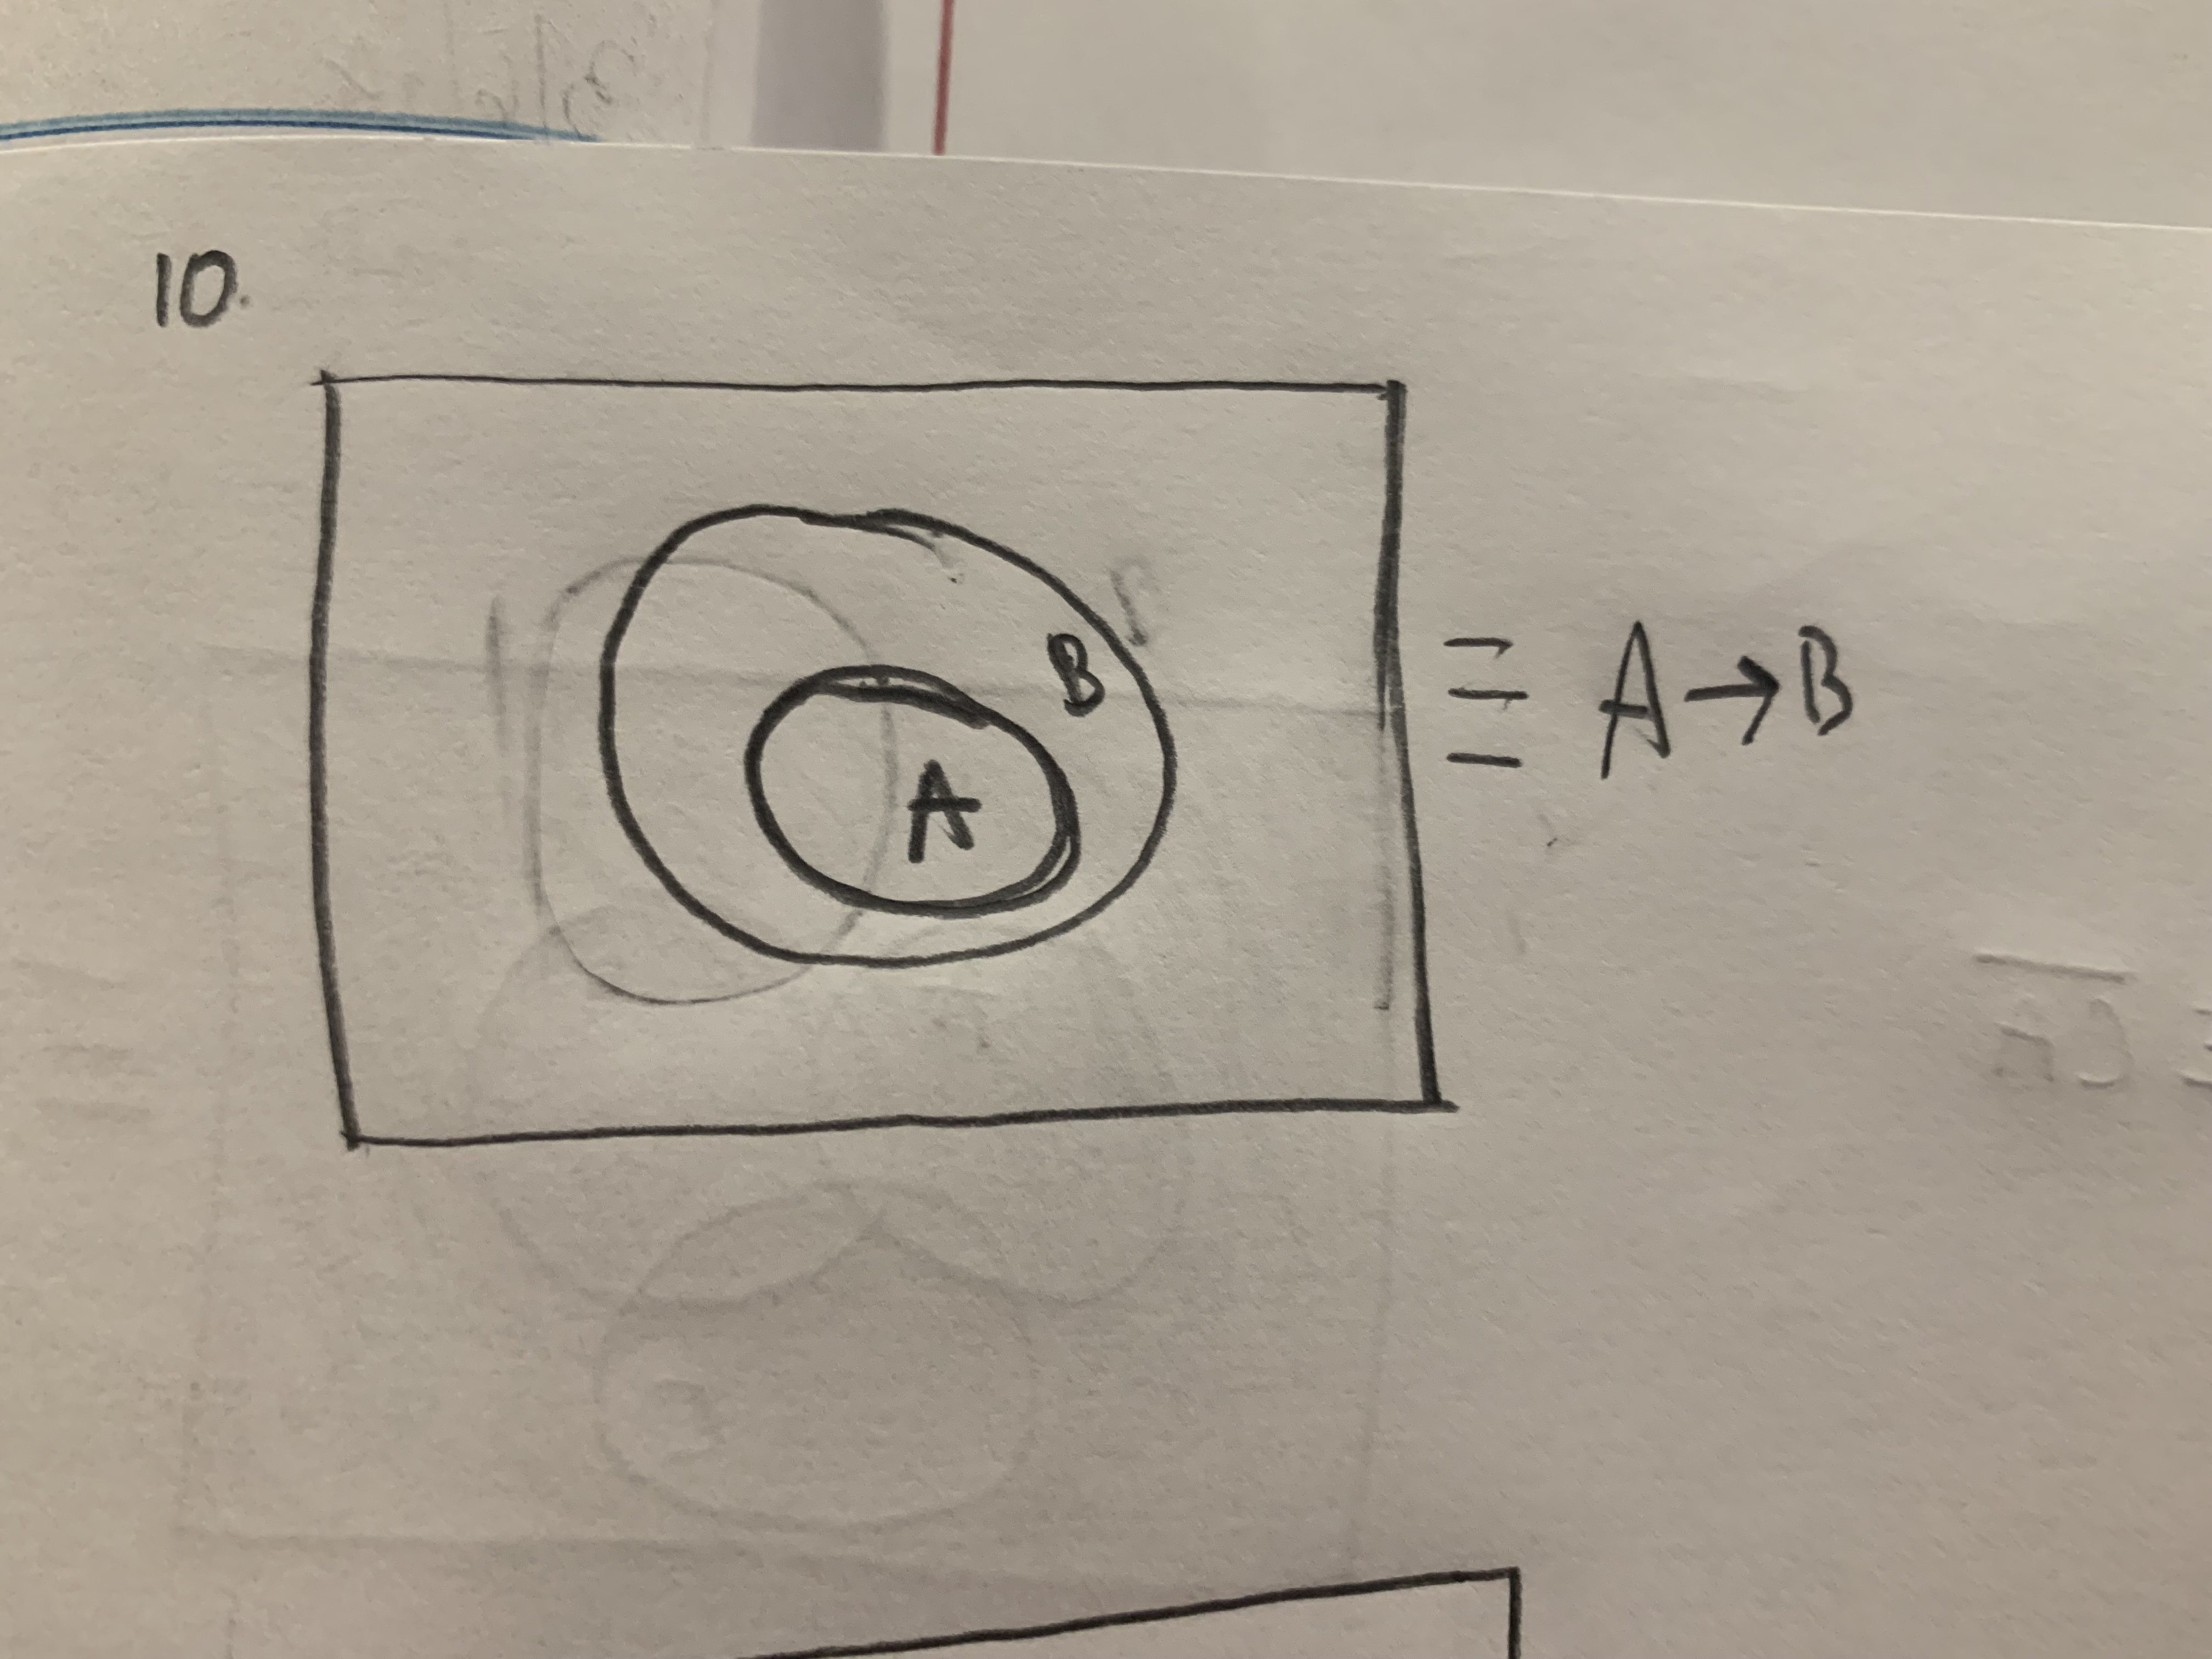 10.
A
B
≡ A → B